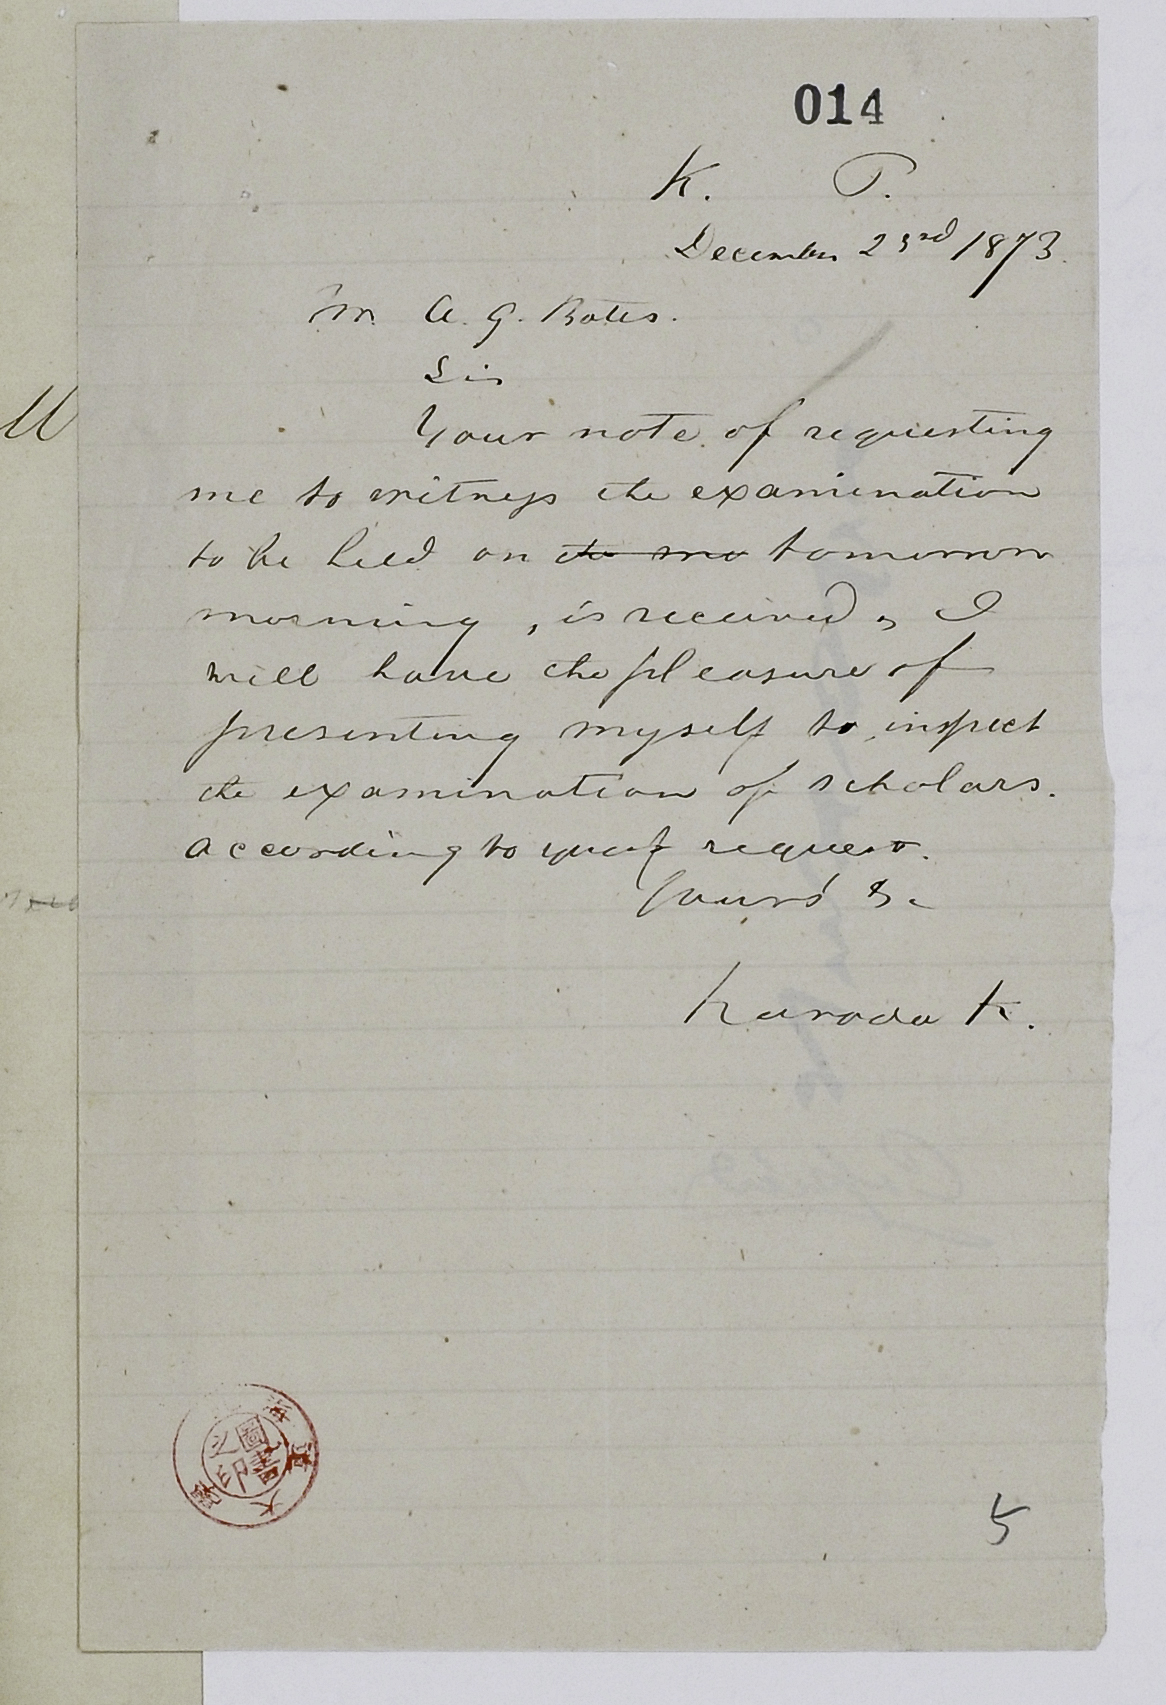 014
K. T.
December 23rd 1873.
Mr. A. G. Bates.
Sir
Your note of requesting
me to witness the examination
to be held on the mo tomorrow
morning, is received, I
will have the pleasure of
presenting myself to inspect
the examination of scholars.
according to your request.
Yours &c
Kuroda K.
圖書之印
5